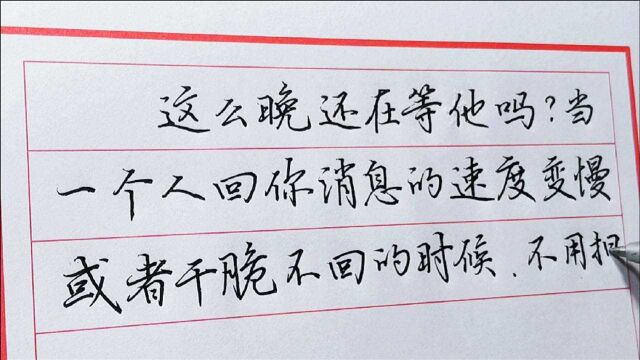 这么晚还在等他吗?当
一个人回你消息的速度变慢
或者干脆不回的时候,不用